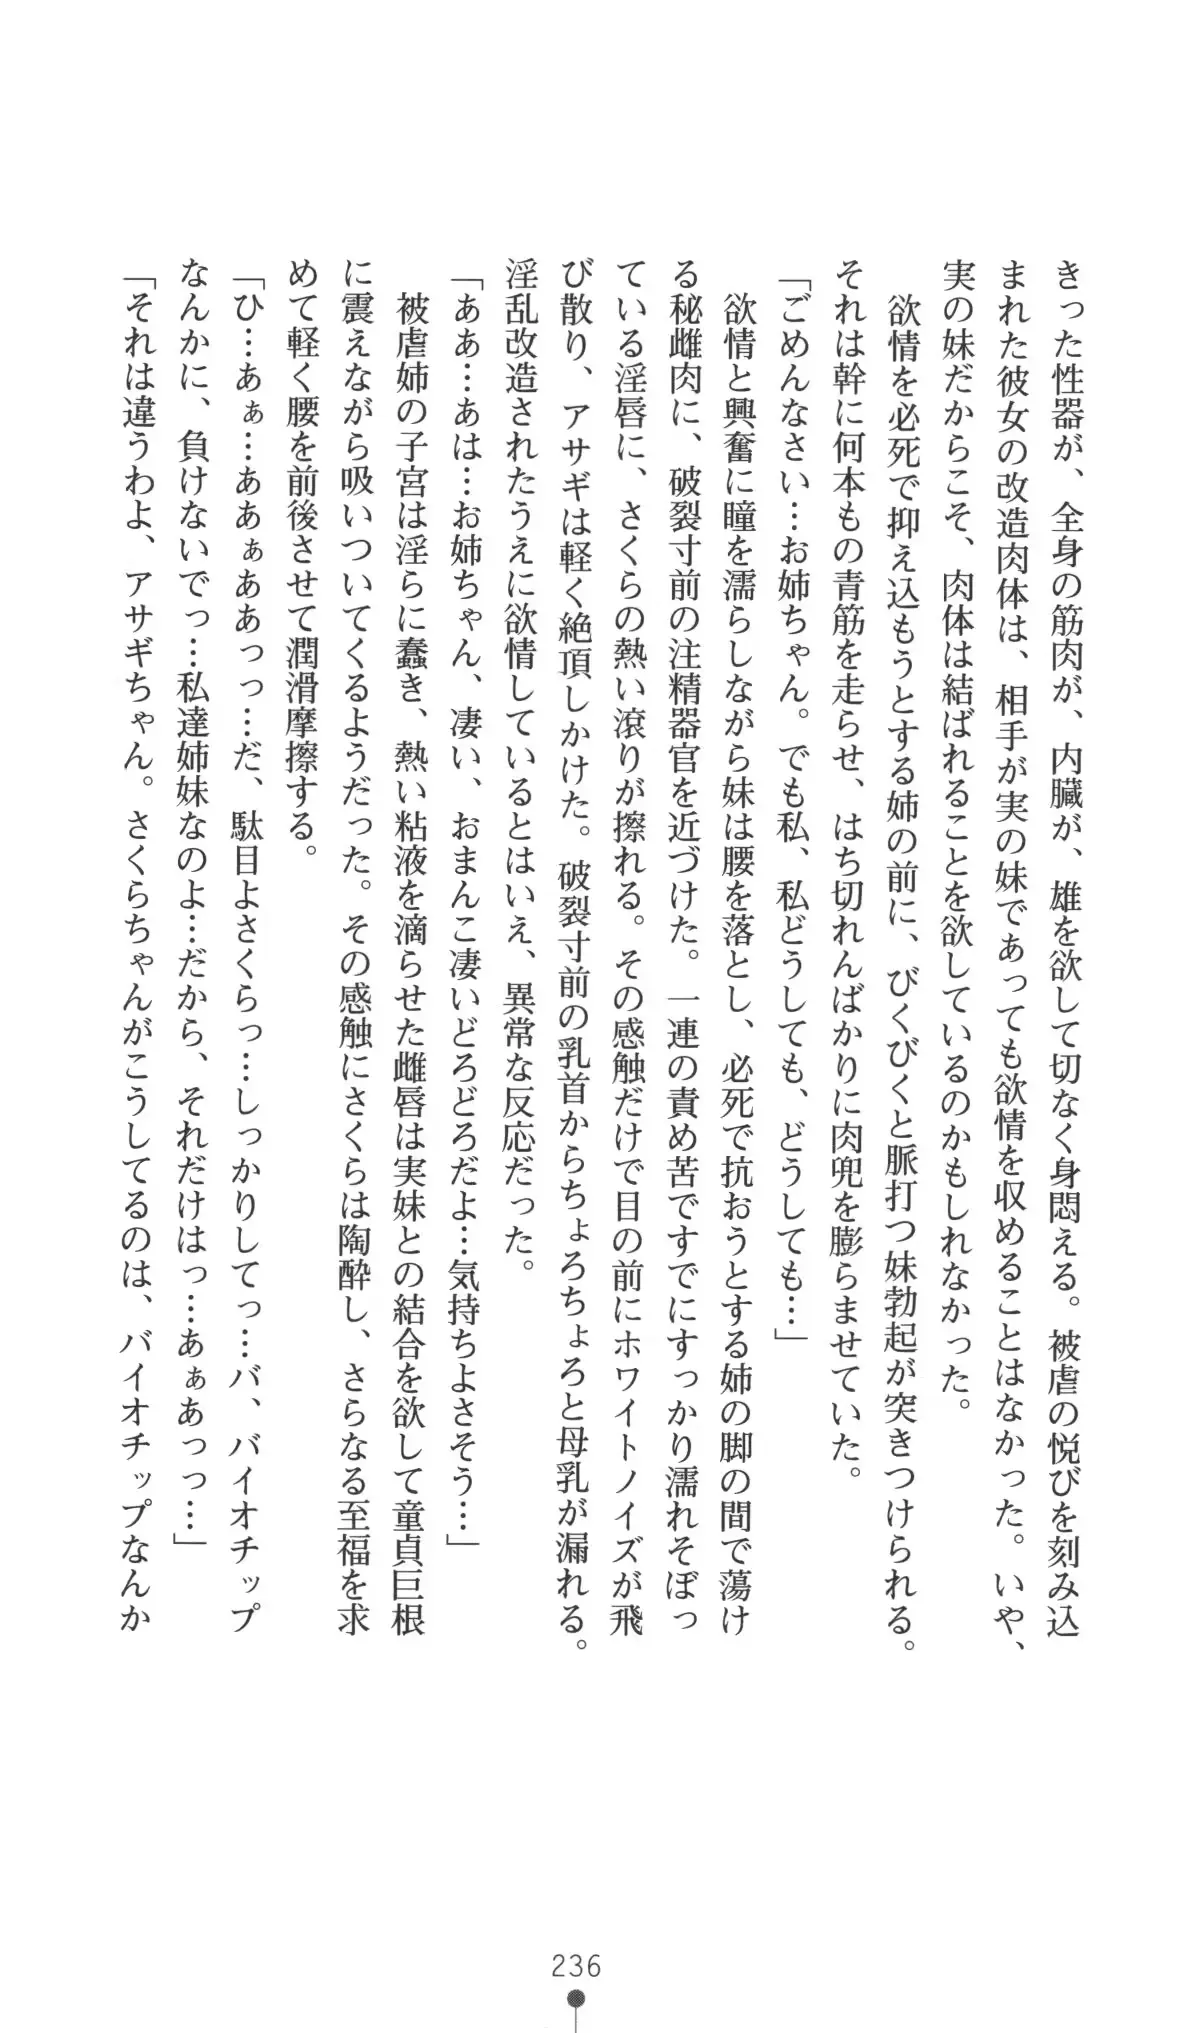 きった性器が、全身の筋肉が、内臓が、雄を欲して切なく身悶える。被虐の悦びを刻み込
まれた彼女の改造肉体は、相手が実の妹であっても欲情を収めることはなかった。いや、
実の妹だからこそ、肉体は結ばれることを欲しているのかもしれなかった。
　欲情を必死で抑え込もうとする姉の前に、びくびくと脈打つ妹勃起が突きつけられる。
それは幹に何本もの青筋を走らせ、はち切れんばかりに肉兜を膨らませていた。
「ごめんなさい…お姉ちゃん。でも私、私どうしても、どうしても…」
　欲情と興奮に瞳を濡らしながら妹は腰を落とし、必死で抗おうとする姉の脚の間で蕩け
る秘雌肉に、破裂寸前の注精器官を近づけた。一連の責め苦ですでにすっかり濡れそぼっ
ている淫唇に、さくらの熱い滾りが擦れる。その感触だけで目の前にホワイトノイズが飛
び散り、アサギは軽く絶頂しかけた。破裂寸前の乳首からちょろちょろと母乳が漏れる。
淫乱改造されたうえに欲情しているとはいえ、異常な反応だった。
「ああ…あは…お姉ちゃん、凄い、おまんこ凄いどろどろだよ…気持ちよさそう…」
　被虐姉の子宮は淫らに蠢き、熱い粘液を滴らせた雌唇は実妹との結合を欲して童貞巨根
に震えながら吸いついてくるようだった。その感触にさくらは陶酔し、さらなる至福を求
めて軽く腰を前後させて潤滑摩擦する。
「ひ…あぁ…ああぁああっっ…だ、駄目よさくらっ…しっかりしてっ…バ、バイオチップ
なんかに、負けないでっ…私達姉妹なのよ…だから、それだけはっ…あぁあっっ…」
「それは違うわよ、アサギちゃん。さくらちゃんがこうしてるのは、バイオチップなんか
236